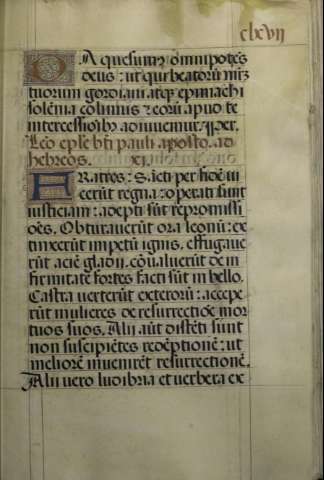 clxvij
DA quesumus omnipotēs
deus: ut qui beatorū mr̄z
tuorum gordiani atqꝫ epimachi
solēnia colimus: eorū apud te
intercessiōibꝫ adiuvemur. per.
Lēo epłe bti pauli apostoł. ad
hebreos. xi.
FRatres: Sācti per fidē vi
cerūt regna: operati sunt
iusticiam: adepti sūt repromissi
ōes. Obturaverūt ora leonū: ex
tinxerūt impetū ignis, effugave
rūt aciē gladii, cōvaluerūt de in
firmitate fortes facti sūt in bello.
Castra verterūt exterorū: accepe
rūt mulieres de resurrectiōe mor
tuos suos. Alii aūt distēti sunt
non suscipiētes redēptionē: ut
meliorē invenirēt resurrectionē.
Alii vero ludibria et verbera ex